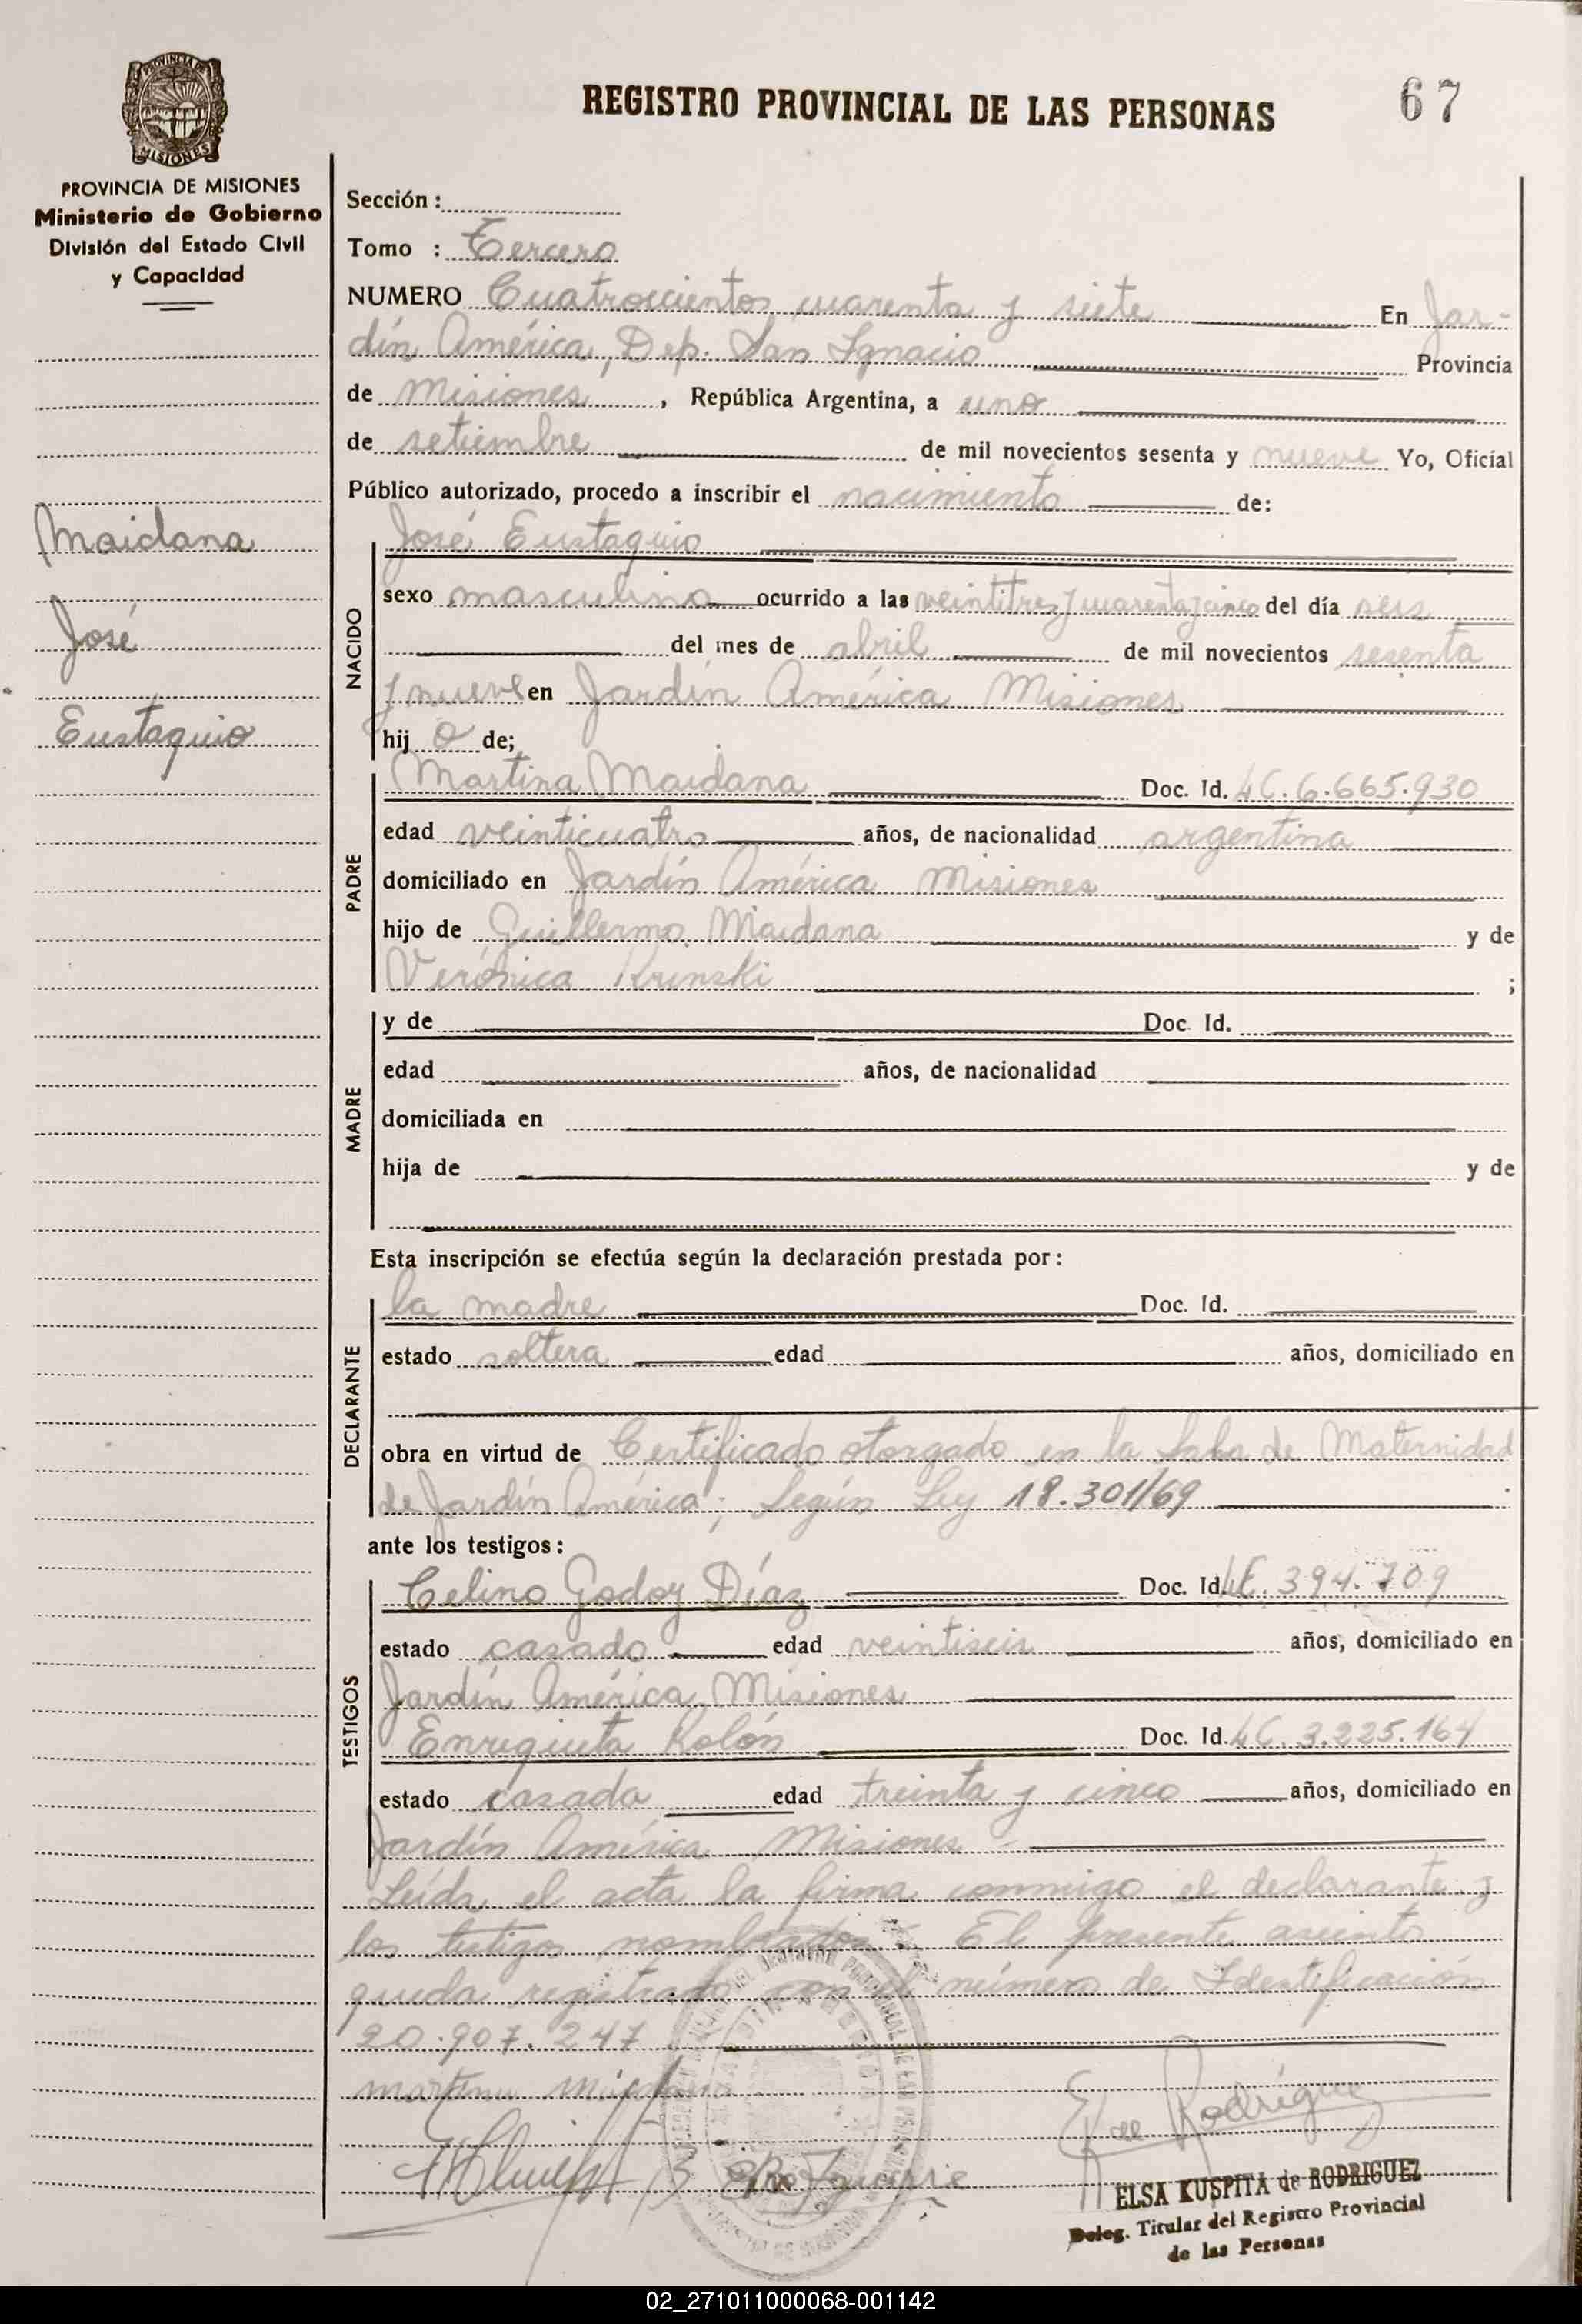 PROVINCIA DE
MISIONES
PROVINCIA DE MISIONES
Ministerio de Gobierno
División del Estado Civil
y Capacidad
REGISTRO PROVINCIAL DE LAS PERSONAS
67
Maidana
José
Eustaquio
Sección :
Tomo : Tercero
NUMERO Cuatrocientos cuarenta y siete En Jar-
dín América, Dep. San Ignacio Provincia
de Misiones, República Argentina, a uno
de setiembre de mil novecientos sesenta y nueve Yo, Oficial
Público autorizado, procedo a inscribir el nacimiento de:
NACIDO
José Eustaquio
sexo masculino ocurrido a las veintitres y cuarenta y cinco del día seis
del mes de abril de mil novecientos sesenta
y nueve en Jardín América Misiones
hij o de;
PADRE
Martina Maidana Doc. Id. LC. 6.665.930
edad veinticuatro años, de nacionalidad argentina
domiciliado en Jardín América Misiones
hijo de Guillermo Maidana y de
Verónica Krinski ;
MADRE
y de Doc. Id.
edad años, de nacionalidad
domiciliada en
hija de y de
Esta inscripción se efectúa según la declaración prestada por:
DECLARANTE
la madre Doc. Id.
estado soltera edad años, domiciliado en
obra en virtud de Certificado otorgado en la Sala de Maternidad
de Jardín América; Según Ley 18.301/69
ante los testigos:
TESTIGOS
Celino Godoy Díaz Doc. Id. 394.709
estado casado edad veintiseis años, domiciliado en
Jardín América, Misiones
Enriqueta Rolón Doc. Id. LC. 3.225.164
estado casada edad treinta y cinco años, domiciliado en
Jardín América Misiones
Leída el acta la firma conmigo el declarante y
los testigos nombrados. El presente asiento
queda registrado con el número de Identificación
20.907.247
Martina Maidana
E K de Rodríguez
ELSA KUSPITA de RODRIGUEZ
Deleg. Titular del Registro Provincial
de las Personas
02_271011000068-001142